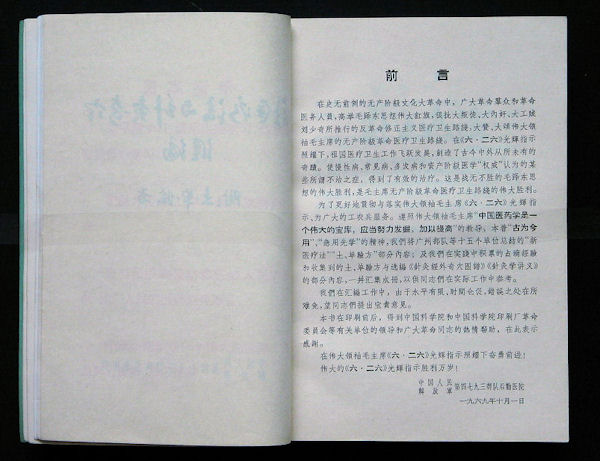 前言
在史无前例的无产阶级文化大革命中，广大革命群众和革命
医务人员，高举毛泽东思想伟大红旗，狠批大叛徒、大内奸、大工贼
刘少奇所推行的反革命修正主义医疗卫生路线，大赞、大颂伟大领
袖毛主席的无产阶级革命医疗卫生路线。在《六·二六》光辉指示
照耀下，祖国医疗卫生工作飞跃发展，创造了古今中外从所未有的
奇蹟。使慢性病、常见病、多发病和资产阶级医学“权威”认为的某
些所谓不治之症，得到了有效的治疗。这是战无不胜的毛泽东思
想的伟大胜利，是毛主席无产阶级革命医疗卫生路线的伟大胜利。
为了更好地贯彻与落实伟大领袖毛主席《六·二六》光辉指
示，为广大的工农兵服务。遵照伟大领袖毛主席“中国医药学是一
个伟大的宝库，应当努力发掘，加以提高”的教导，本着“古为今
用”，“急用先学”的精神，我们将广州部队等十五个单位总结的“新
医疗法”“土、单验方”部分内容；及我们在实践中积累的点滴经验
和收集到的土、单验方与选编《针灸经外奇穴图谱》《针灸学讲义》
的部分内容，一并汇集成册，以供同志们在实际工作中参考。
我们在汇编工作中，由于水平有限，时间仓促，错误之处在所
难免，望同志们提出宝贵意见。
本书在印刷前后，得到中国科学院和中国科学院印刷厂革命
委员会等有关单位的领导和广大革命同志的热情帮助，在此表示
感谢。
在伟大领袖毛主席《六·二六》光辉指示照耀下奋勇前进！
伟大的《六·二六》光辉指示胜利万岁！
中国人民
解放军 第四七九三部队后勤医院
一九六九年十月一日